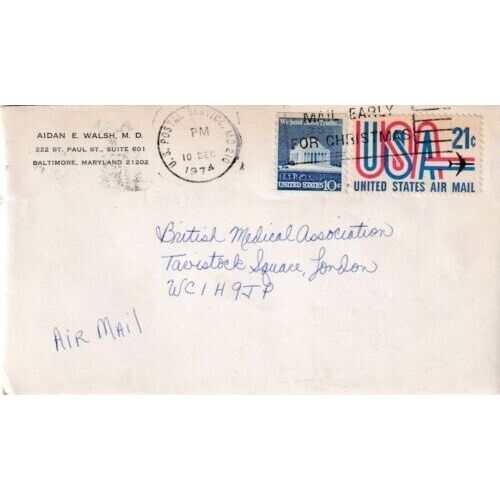 AIDAN E. WALSH, M. D.
222 ST. PAUL ST., SUITE 601
BALTIMORE, MARYLAND 21202
U.S. POSTAL SERVICE, MD 210
PM
10 DEC
1974
MAIL EARLY
FOR CHRISTMAS
UNITED STATES 10¢
USA 21¢
UNITED STATES AIR MAIL
British Medical Association
Tavistock Square, London
WC1H 9JP
AIR MAIL